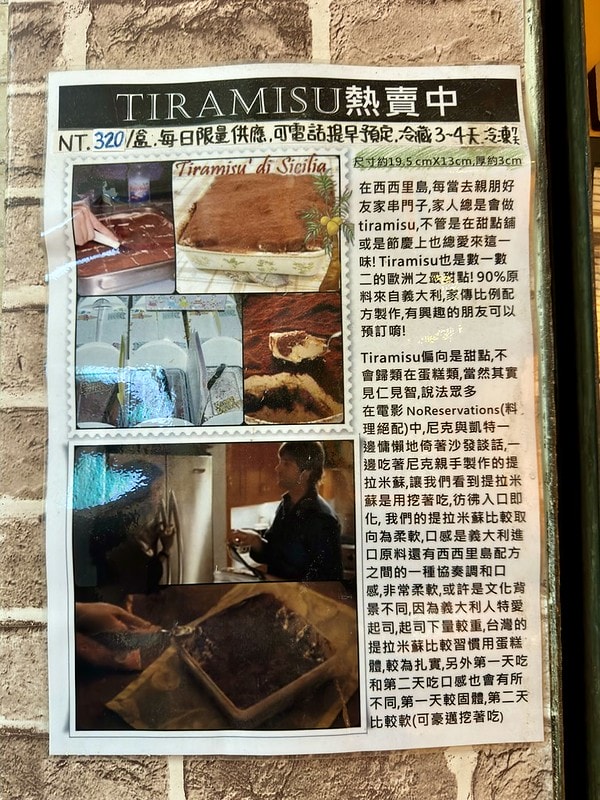 TIRAMISU熱賣中
NT. 320/盒.每日限量供應.可電話提早預定.冷藏3~4天 冷凍7天
尺寸約19.5 cmX13cm,厚約3cm
Tiramisu' di Sicilia
在西西里島,每當去親朋好
友家串門子,家人總是會做
tiramisu,不管是在甜點舖
或是節慶上也總愛來這一
味! Tiramisu也是數一數
二的歐洲之最甜點! 90%原
料來自義大利,家傳比例配
方製作,有興趣的朋友可以
預訂唷!
Tiramisu偏向是甜點,不
會歸類在蛋糕類,當然其實
見仁見智,說法眾多
在電影 NoReservations(料
理絕配)中,尼克與凱特一
邊慵懶地倚著沙發談話,一
邊吃著尼克親手製作的提
拉米蘇,讓我們看到提拉米
蘇是用挖著吃,彷彿入口即
化, 我們的提拉米蘇比較取
向為柔軟,口感是義大利進
口原料還有西西里島配方
之間的一種協奏調和口
感,非常柔軟,或許是文化背
景不同,因為義大利人特愛
起司,起司下量較重,台灣的
提拉米蘇比較習慣用蛋糕
體,較為扎實,另外第一天吃
和第二天吃口感也會有所
不同,第一天較固體,第二天
比較軟(可豪邁挖著吃)